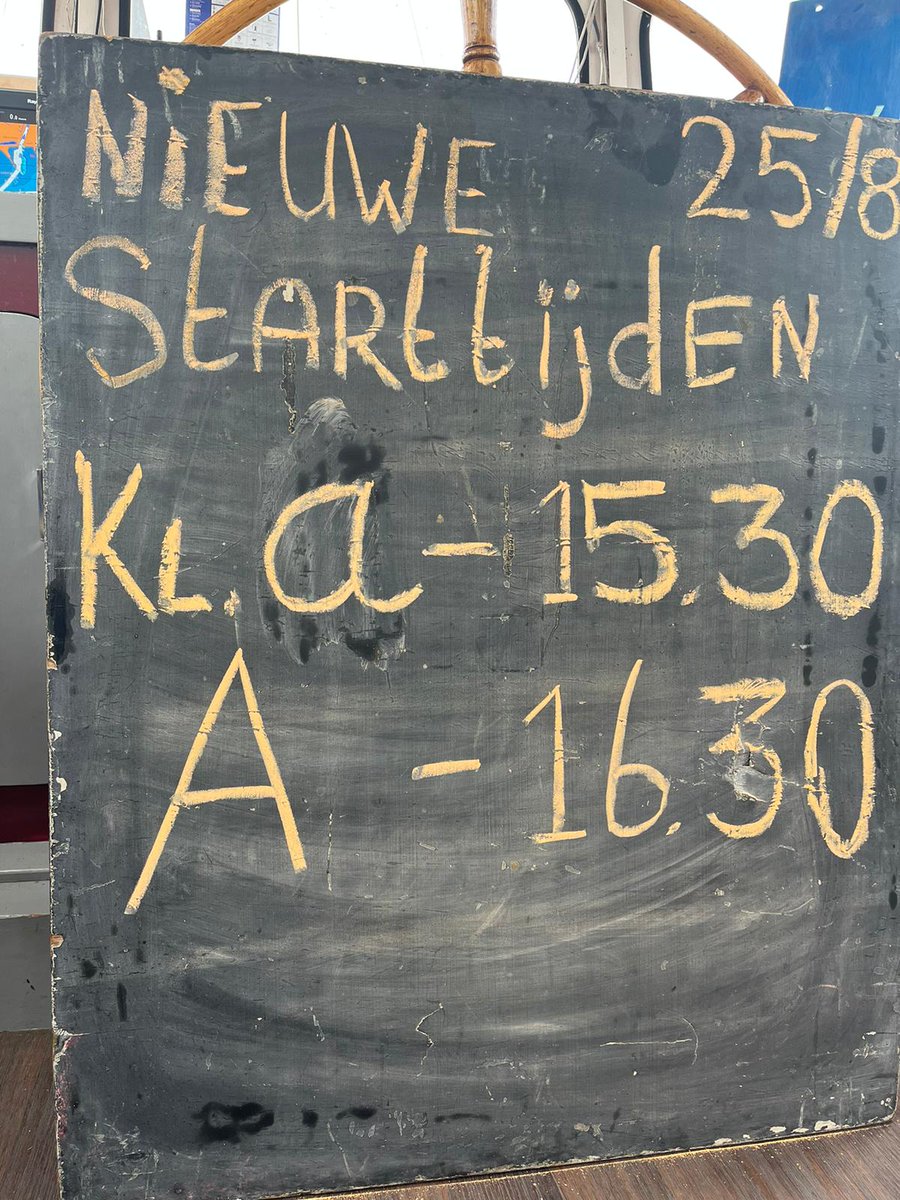 NiEUWE 25/8
StARttijdEN
KL. a - 15.30
A - 16.30